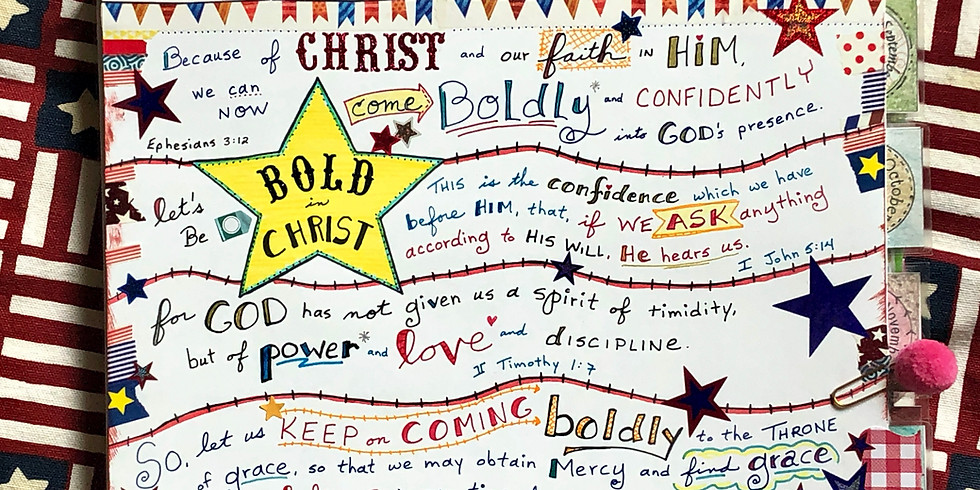 Because of CHRIST and our faith in HiM,
we can NOW come BOLDLY and CONFIDENTLY
into GOD's presence.
Ephesians 3:12
let's Be
BOLD
in
CHRIST
THIS is the confidence which we have
before HIM, that, if WE ASK anything
according to HIS WILL, He hears us.
I John 5:14
for GOD has not given us a spirit of timidity,
but of power and love and discipline.
II Timothy 1:7
So, let us KEEP on COMING boldly to the THRONE
of grace, so that we may obtain Mercy and find grace
October